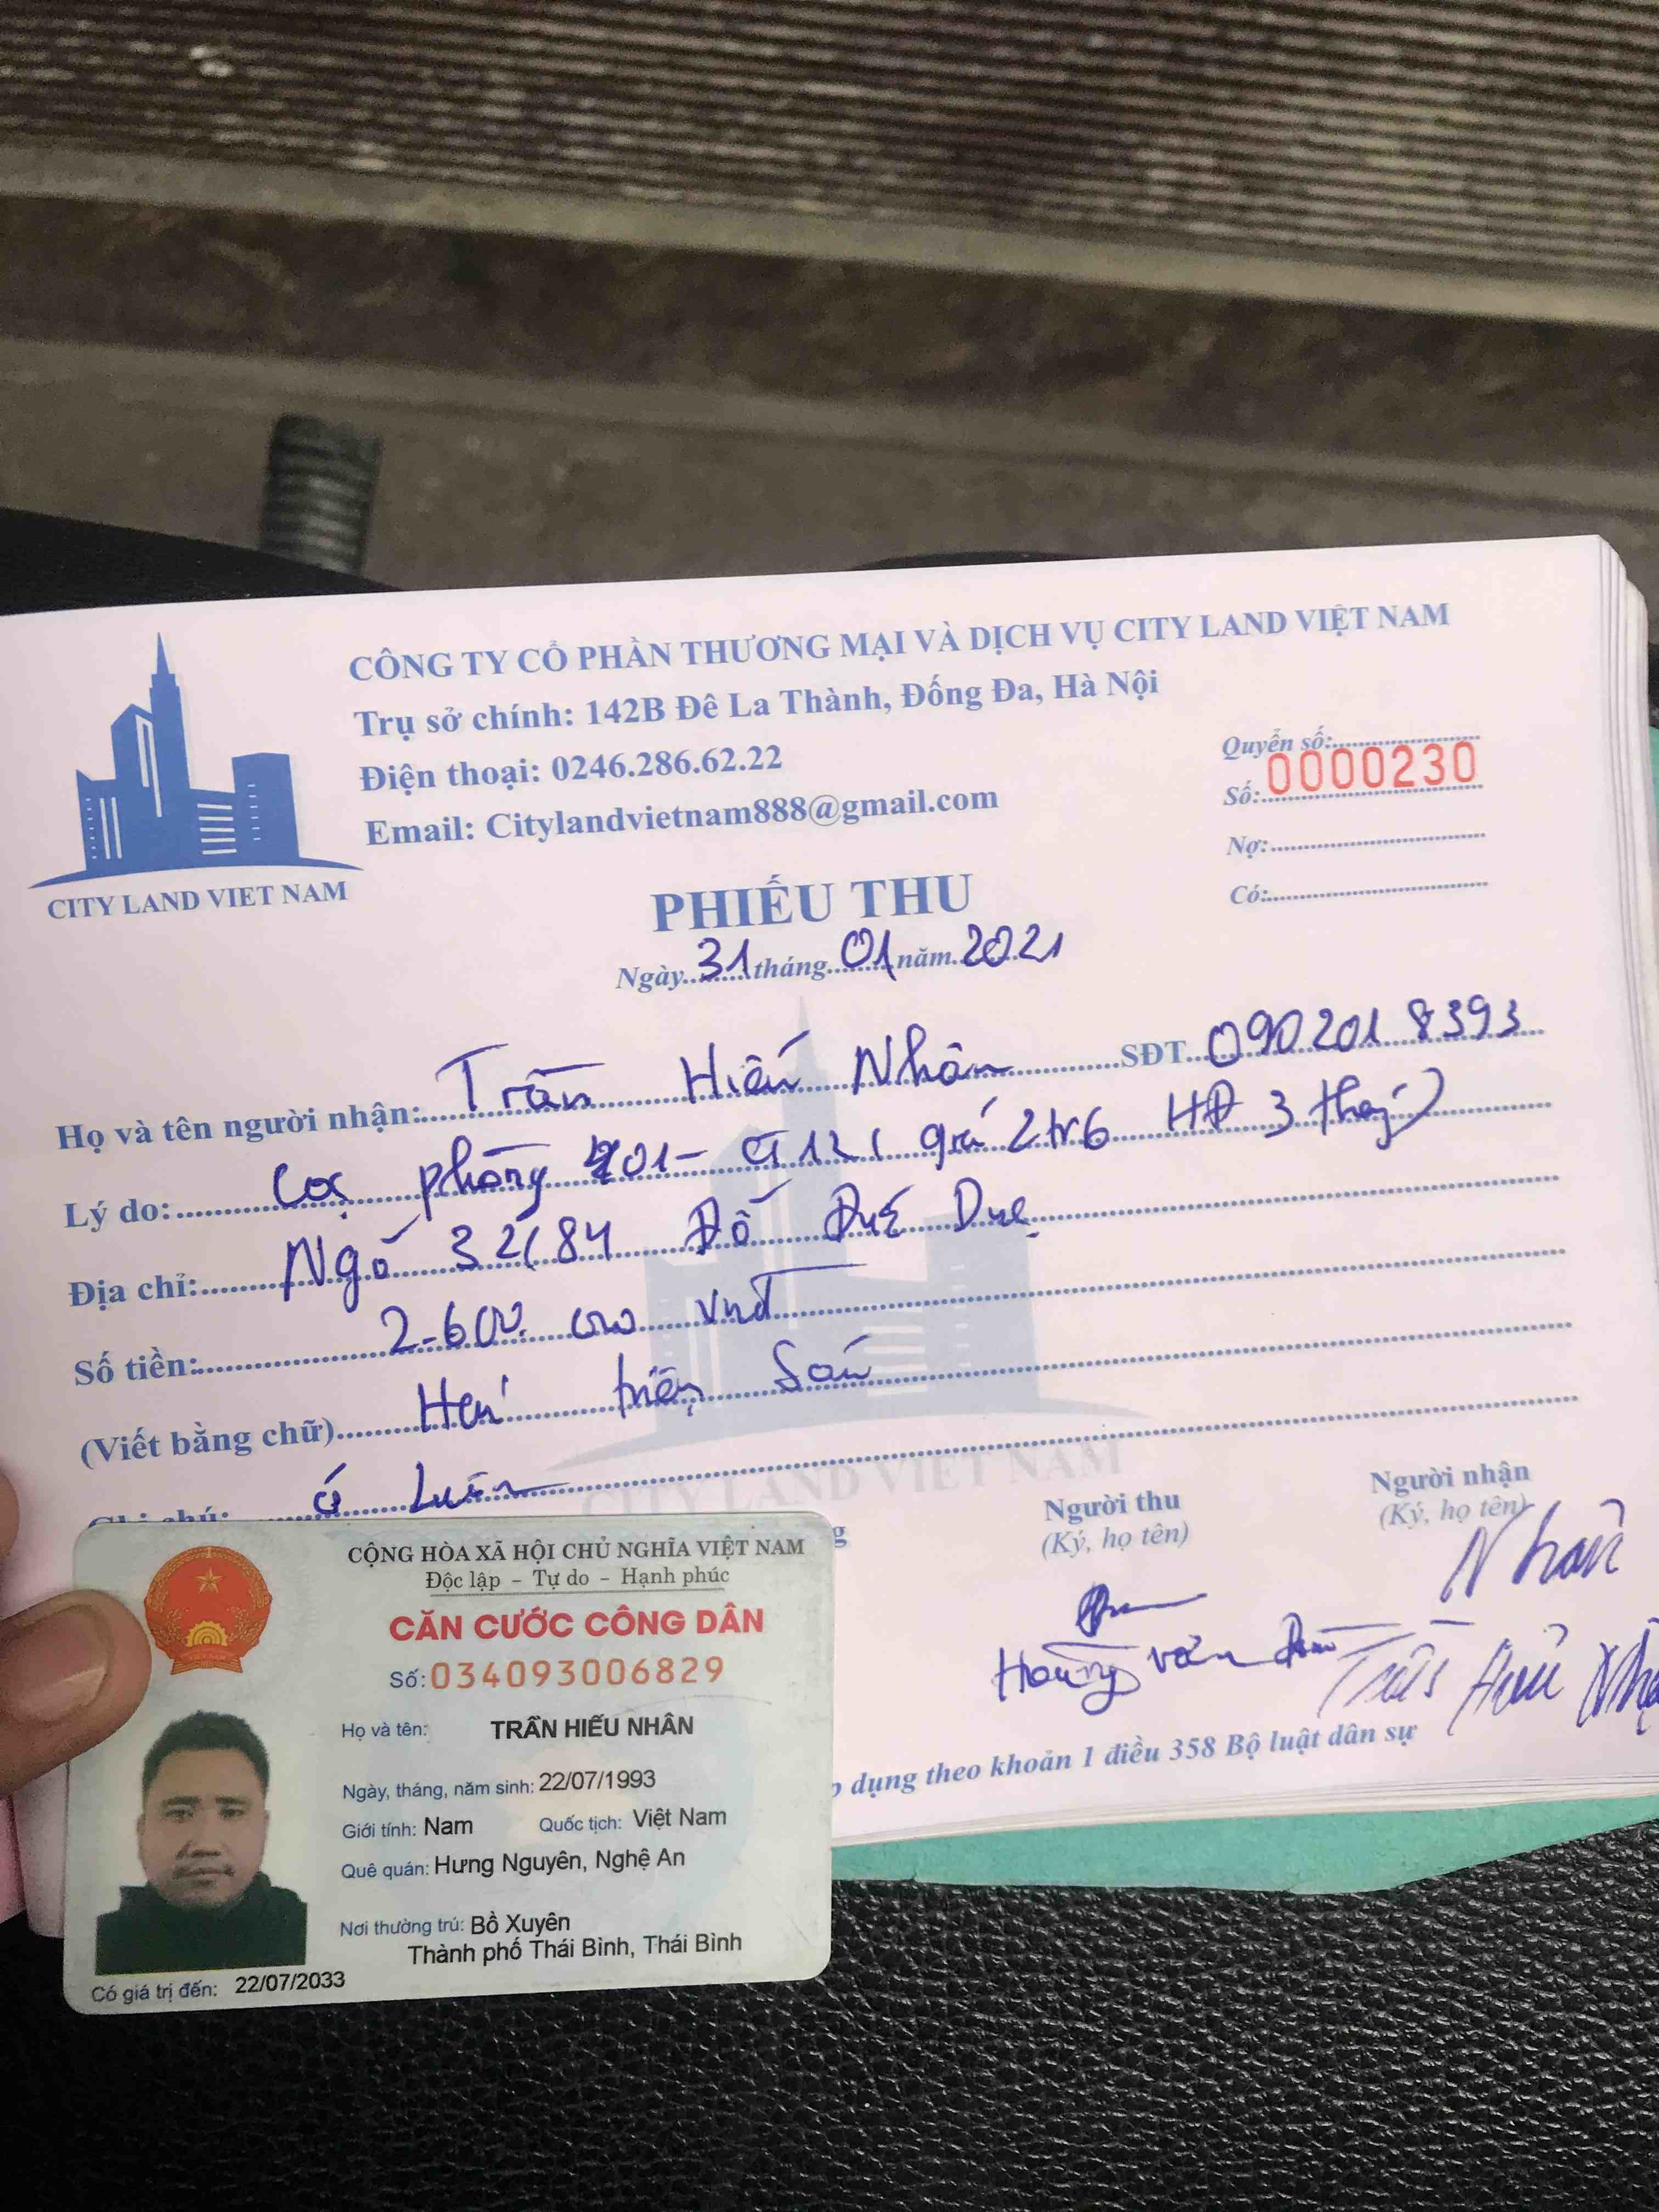 CÔNG TY CỔ PHẦN THƯƠNG MẠI VÀ DỊCH VỤ CITY LAND VIỆT NAM
Trụ sở chính: 142B Đê La Thành, Đống Đa, Hà Nội
Điện thoại: 0246.286.62.22
Email: Citylandvietnam888@gmail.com
CITY LAND VIET NAM
Quyển số:
Số: 0000230
Nợ:
Có:
PHIẾU THU
Ngày 31 tháng 01 năm 2021
Họ và tên người nhận: Trần Hiếu Nhân SĐT 0902018393
Lý do: Cọc phòng 201 - giá 2tr6 HĐ 3 tháng
Địa chỉ: Ngõ 32/84 Đỗ Đức Dục
Số tiền: 2.600.000 vnđ
(Viết bằng chữ) Hai triệu Sáu
Ghi chú: ở Luôn
CITY LAND VIET NAM
Người thu
(Ký, họ tên)
Người nhận
(Ký, họ tên)
Nhân
Hoàng văn
Trần Hiếu
dụng theo khoản 1 điều 358 Bộ luật dân sự
CỘNG HÒA XÃ HỘI CHỦ NGHĨA VIỆT NAM
Độc lập - Tự do - Hạnh phúc
CĂN CƯỚC CÔNG DÂN
Số: 034093006829
Họ và tên: TRẦN HIẾU NHÂN
Ngày, tháng, năm sinh: 22/07/1993
Giới tính: Nam Quốc tịch: Việt Nam
Quê quán: Hưng Nguyên, Nghệ An
Nơi thường trú: Bồ Xuyên
Thành phố Thái Bình, Thái Bình
Có giá trị đến: 22/07/2033